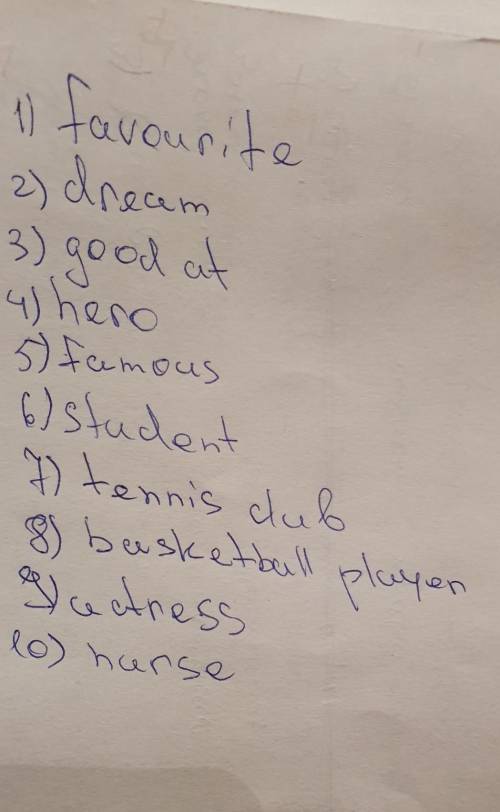 1) favourite
2) dream
3) good at
4) hero
5) famous
6) student
7) tennis club
8) basketball player
9) actress
10) nurse